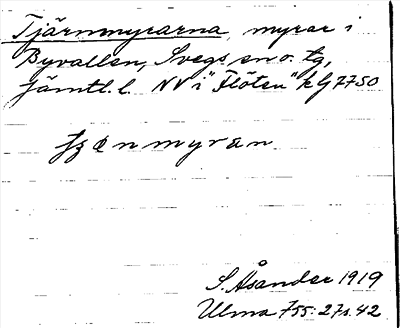 Tjärnmyrarna, myrar i
Byvallen, Svegs sn o. tg,
Jämtl. l. NV i "Flöten" k G 7750
S. Åsander 1919
Ulma 755:27 s. 42